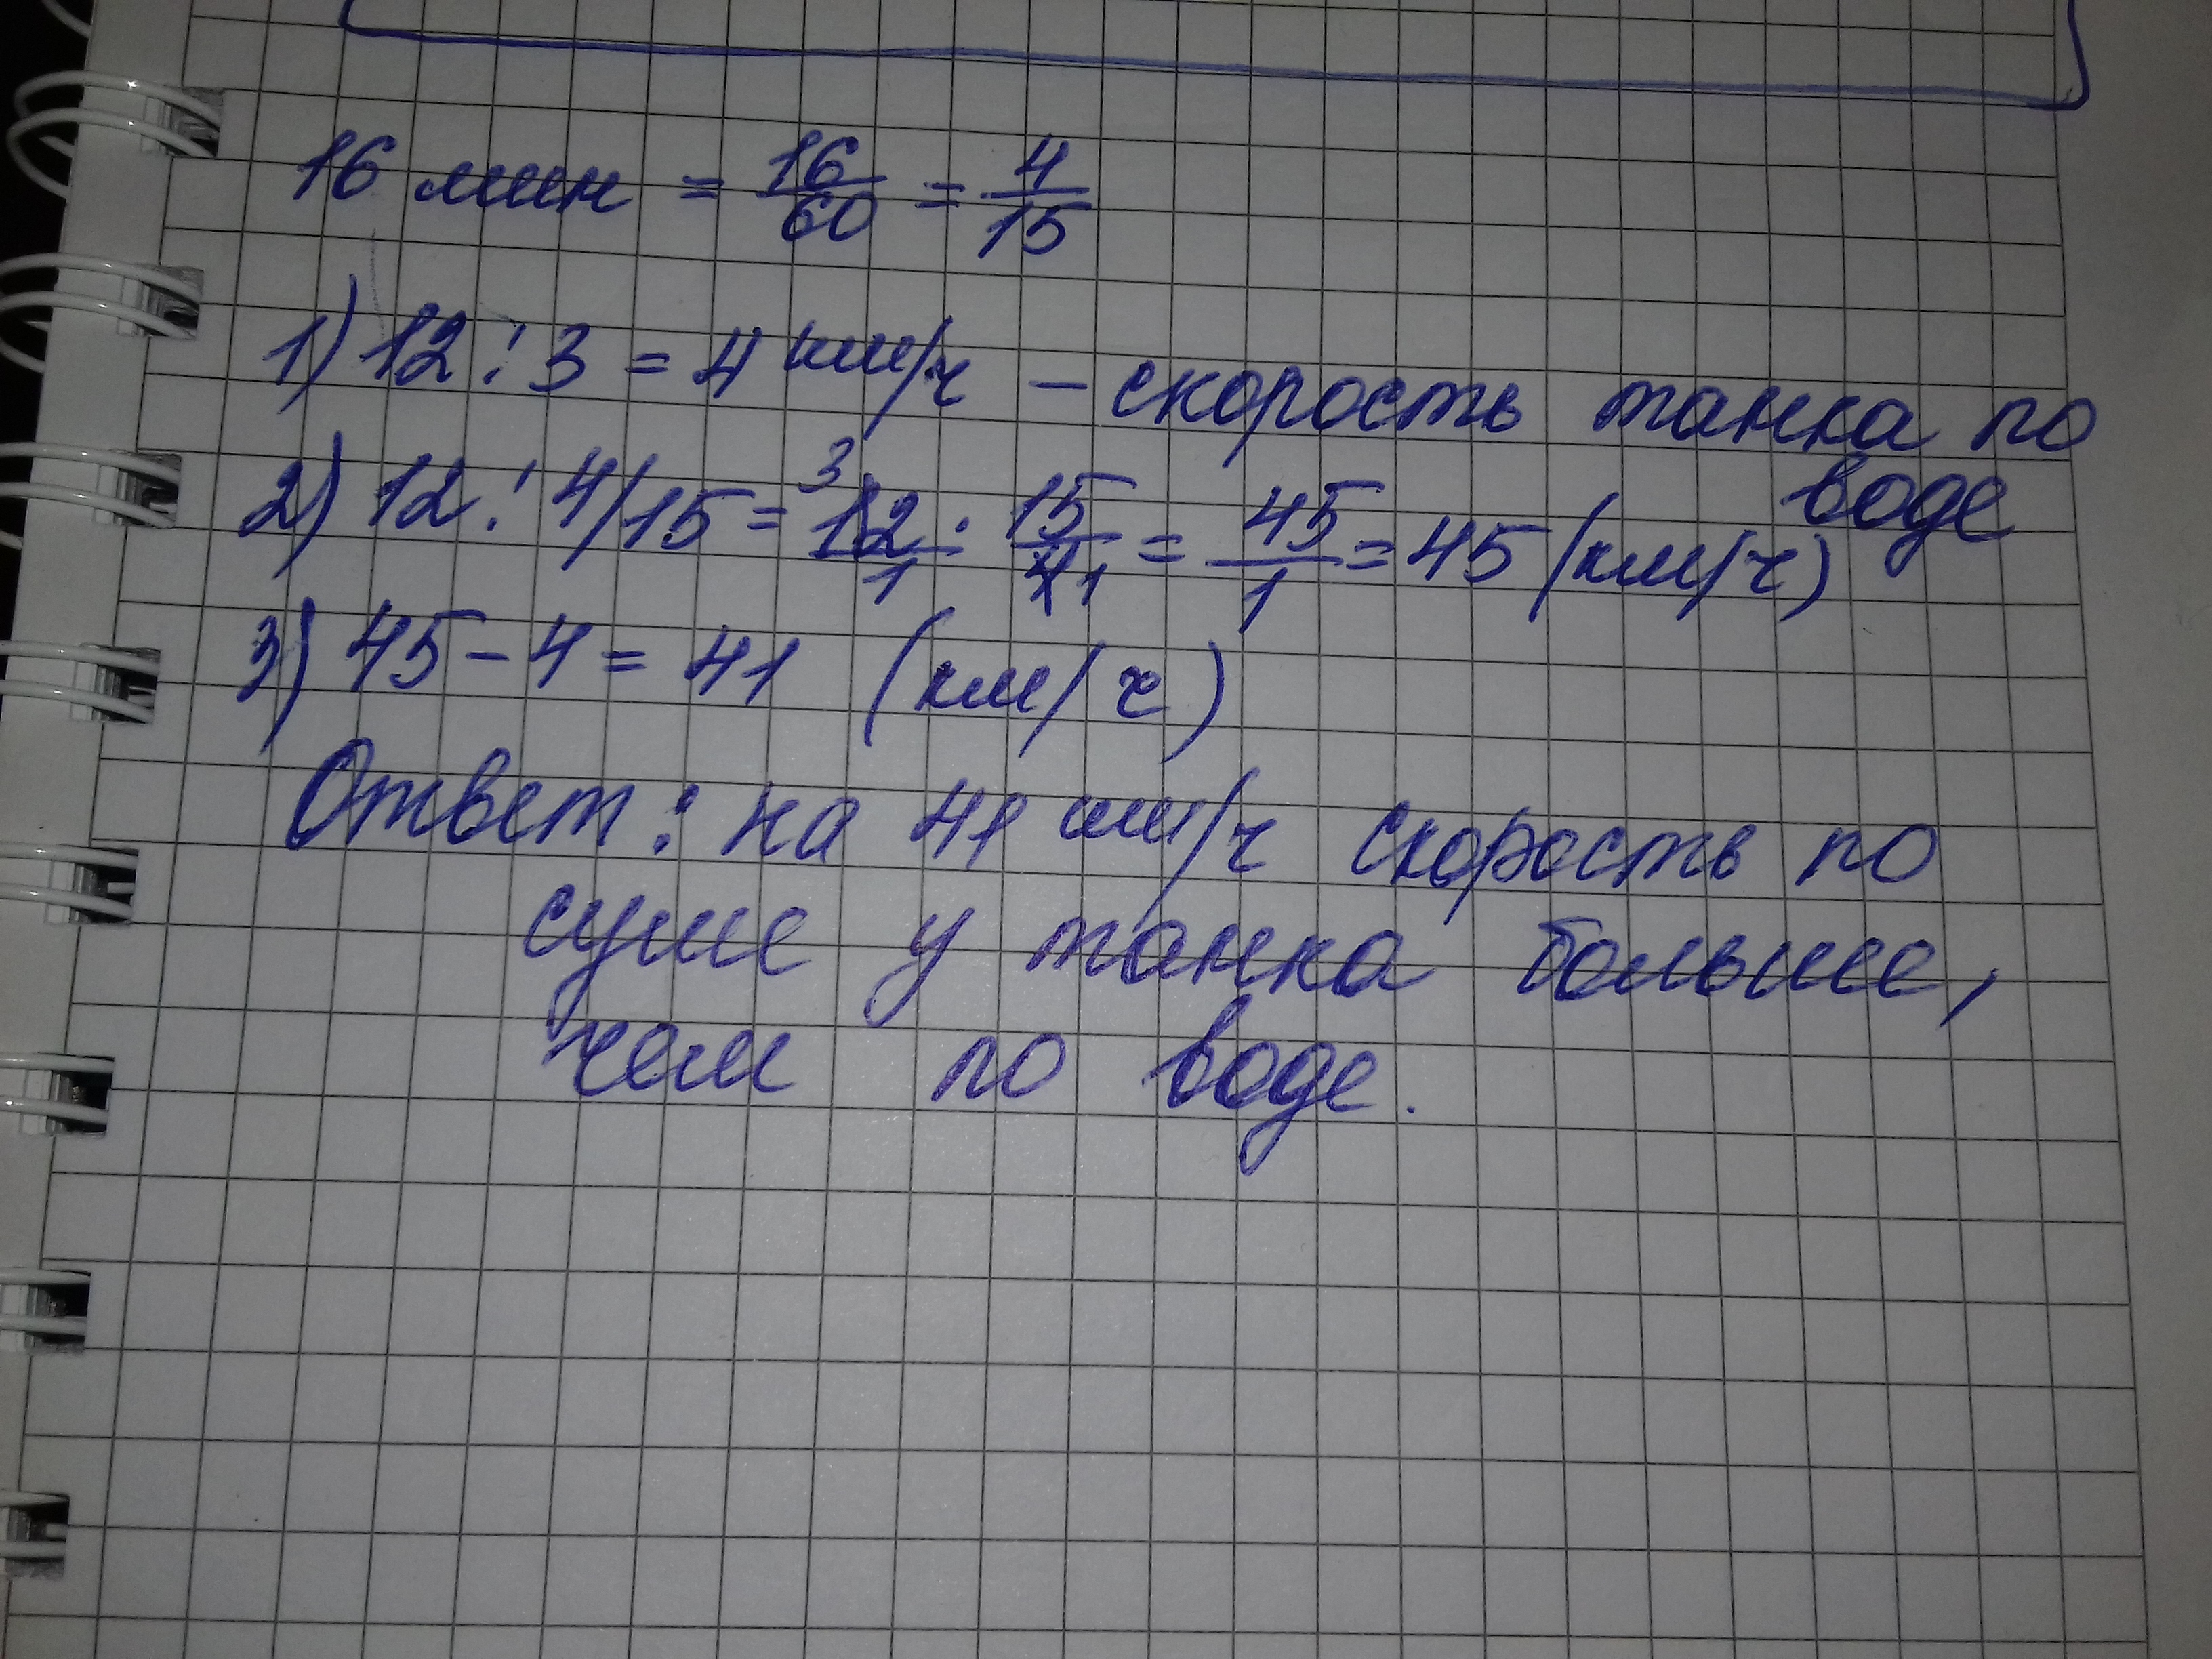 16 мин = 16/60 = 4/15
1) 12 : 3 = 4 км/ч – скорость танка по
воде
2) 12 : 4/15 = 3 12/1 · 15/4 1 = 45/1 = 45 (км/ч)
3) 45 – 4 = 41 (км/ч)
Ответ: на 41 км/ч скорость по
суше у танка больше,
чем по воде.